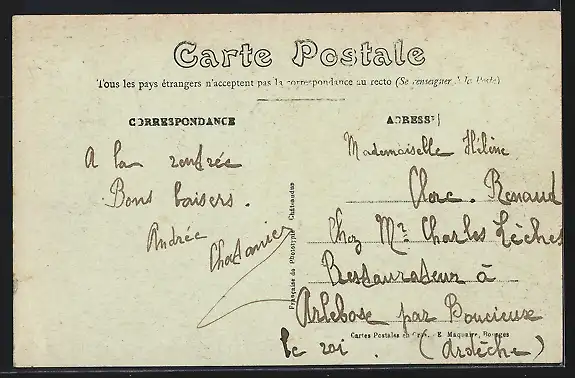 Carte Postale
Tous les pays étrangers n'acceptent pas la correspondance au recto (Se renseigner à la Poste)
CORRESPONDANCE
A la rentrée
Bons baisers.
Andrée
ADRESSE
Mademoiselle Hélène
Renaud
Chez Mr Charles Lèches
Restaurateur à
Arlebosc par Boucieux
le roi. (Ardèche)
Française de Phototypie Châteaudun
Cartes Postales en Gros. - E. Maquaire, Bourges